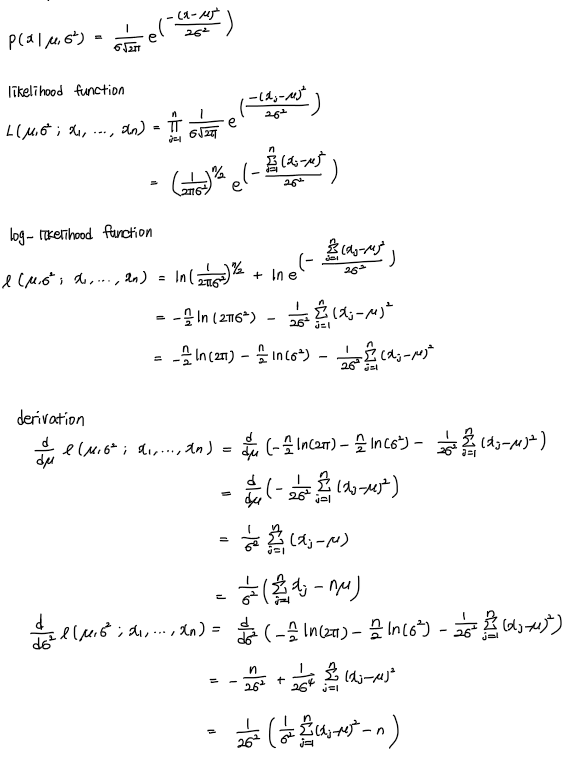 P(x | μ, σ²) = 1/(σ√2π) e^(-(x-μ)²/2σ²)
likelihood function
L(μ, σ² ; x₁, ..., xₙ) = ∏_{j=1}^{n} 1/(σ√2π) e^(-(xⱼ-μ)²/2σ²)
= (1/2πσ²)^{n/2} e^(- ∑_{j=1}^{n} (xⱼ-μ)²/2σ²)
log-likelihood function
ℓ(μ, σ² ; x₁, ..., xₙ) = ln(1/2πσ²)^{n/2} + ln e^(- ∑_{j=1}^{n} (xⱼ-μ)²/2σ²)
= -n/2 ln(2πσ²) - 1/2σ² ∑_{j=1}^{n} (xⱼ-μ)²
= -n/2 ln(2π) - n/2 ln(σ²) - 1/2σ² ∑_{j=1}^{n} (xⱼ-μ)²
derivation
d/dμ ℓ(μ, σ² ; x₁, ..., xₙ) = d/dμ (-n/2 ln(2π) - n/2 ln(σ²) - 1/2σ² ∑_{j=1}^{n} (xⱼ-μ)²)
= d/dμ (- 1/2σ² ∑_{j=1}^{n} (xⱼ-μ)²)
= 1/σ² ∑_{j=1}^{n} (xⱼ-μ)
= 1/σ² (∑_{j=1}^{n} xⱼ - nμ)
d/dσ² ℓ(μ, σ² ; x₁, ..., xₙ) = d/dσ² (-n/2 ln(2π) - n/2 ln(σ²) - 1/2σ² ∑_{j=1}^{n} (xⱼ-μ)²)
= - n/2σ² + 1/2σ⁴ ∑_{j=1}^{n} (xⱼ-μ)²
= 1/2σ² (1/σ² ∑_{j=1}^{n} (xⱼ-μ)² - n)